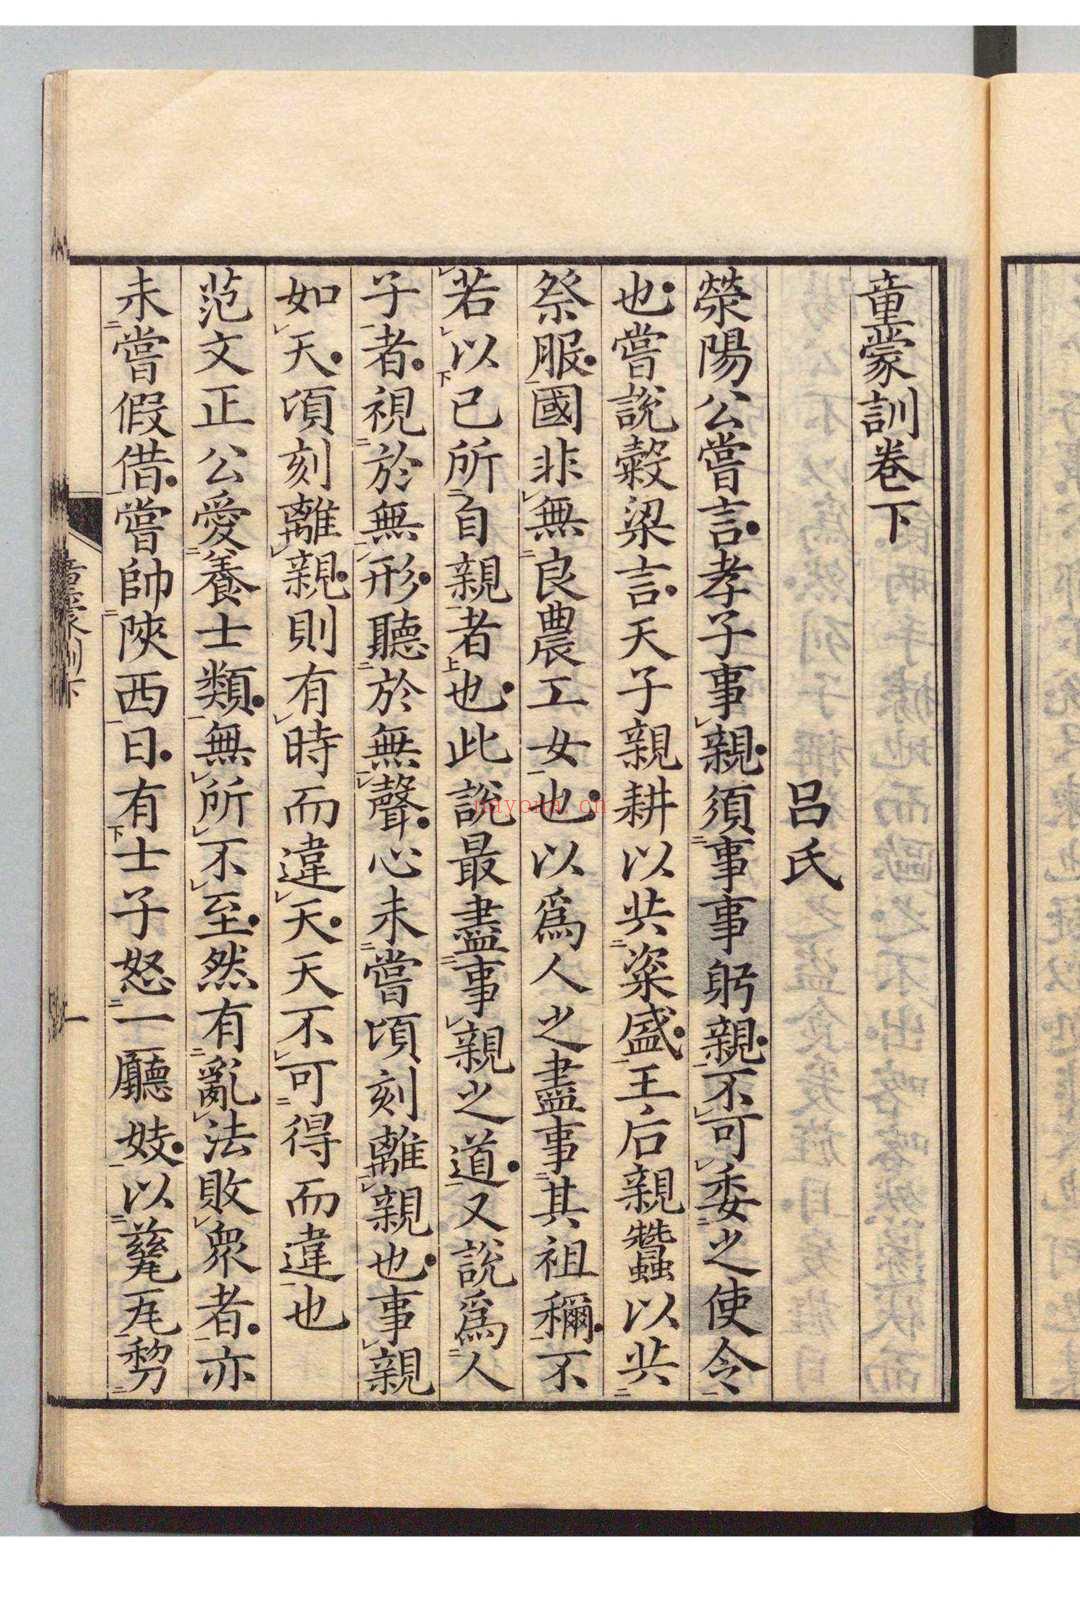 童蒙訓卷下
呂氏
滎陽公嘗言孝子事親須事事躬親不可委之使令
也嘗說穀梁言天子親耕以共粢盛王后親蠶以共
祭服國非無良農工女也以爲人之盡事其祖禰不
若以己所自親者也此說最盡事親之道又說爲人
子者視於無形聽於無聲心未嘗頃刻離親也事親
如天頃刻離親則有時而違天天不可得而違也
范文正公愛養士類無所不至然有亂法敗衆者亦
未嘗假借嘗帥陝西日有士子怒一廳妓以甆瓦剺
童蒙訓下
一